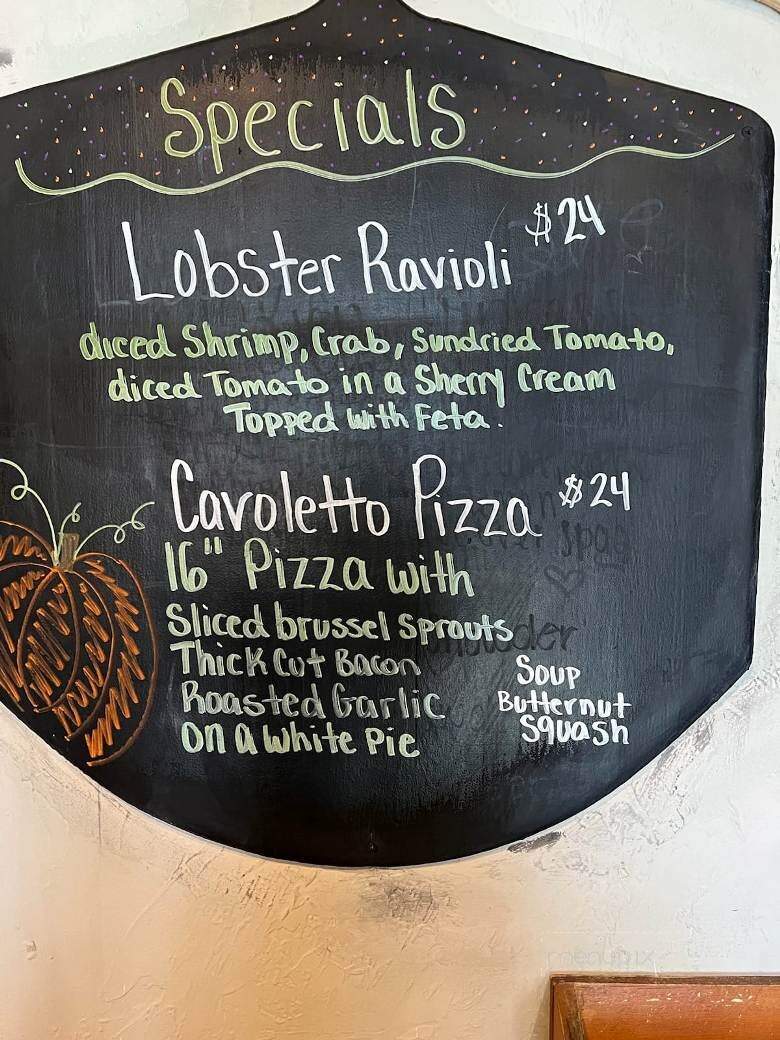 Specials
Lobster Ravioli $24
diced Shrimp, Crab, Sundried Tomato,
diced Tomato in a Sherry Cream
Topped with Feta.
Cavoletto Pizza $24
16" Pizza with
Sliced brussel sprouts
Thick Cut Bacon
Roasted Garlic
on a white Pie
Soup
Butternut
Squash